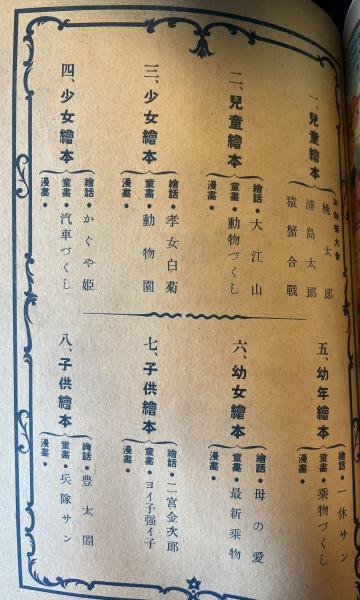 一、兒童繪本
お伽噺大會
桃太郎
浦島太郎
猿蟹合戰
二、兒童繪本
繪話・大江山
童畫・動物づくし
漫畫・
三、少女繪本
繪話・孝女白菊
童畫・動物園
漫畫・
四、少女繪本
繪話・かぐや姫
童畫・汽車づくし
漫畫・
五、幼年繪本
繪話・一休サン
童畫・乘物づくし
漫畫・
六、幼女繪本
繪話・母の愛
童畫・最新乘物
漫畫・
七、子供繪本
繪話・二宮金次郎
童畫・ヨイ子强イ子
漫畫・
八、子供繪本
繪話・豊太閤
童畫・兵隊サン
漫畫・